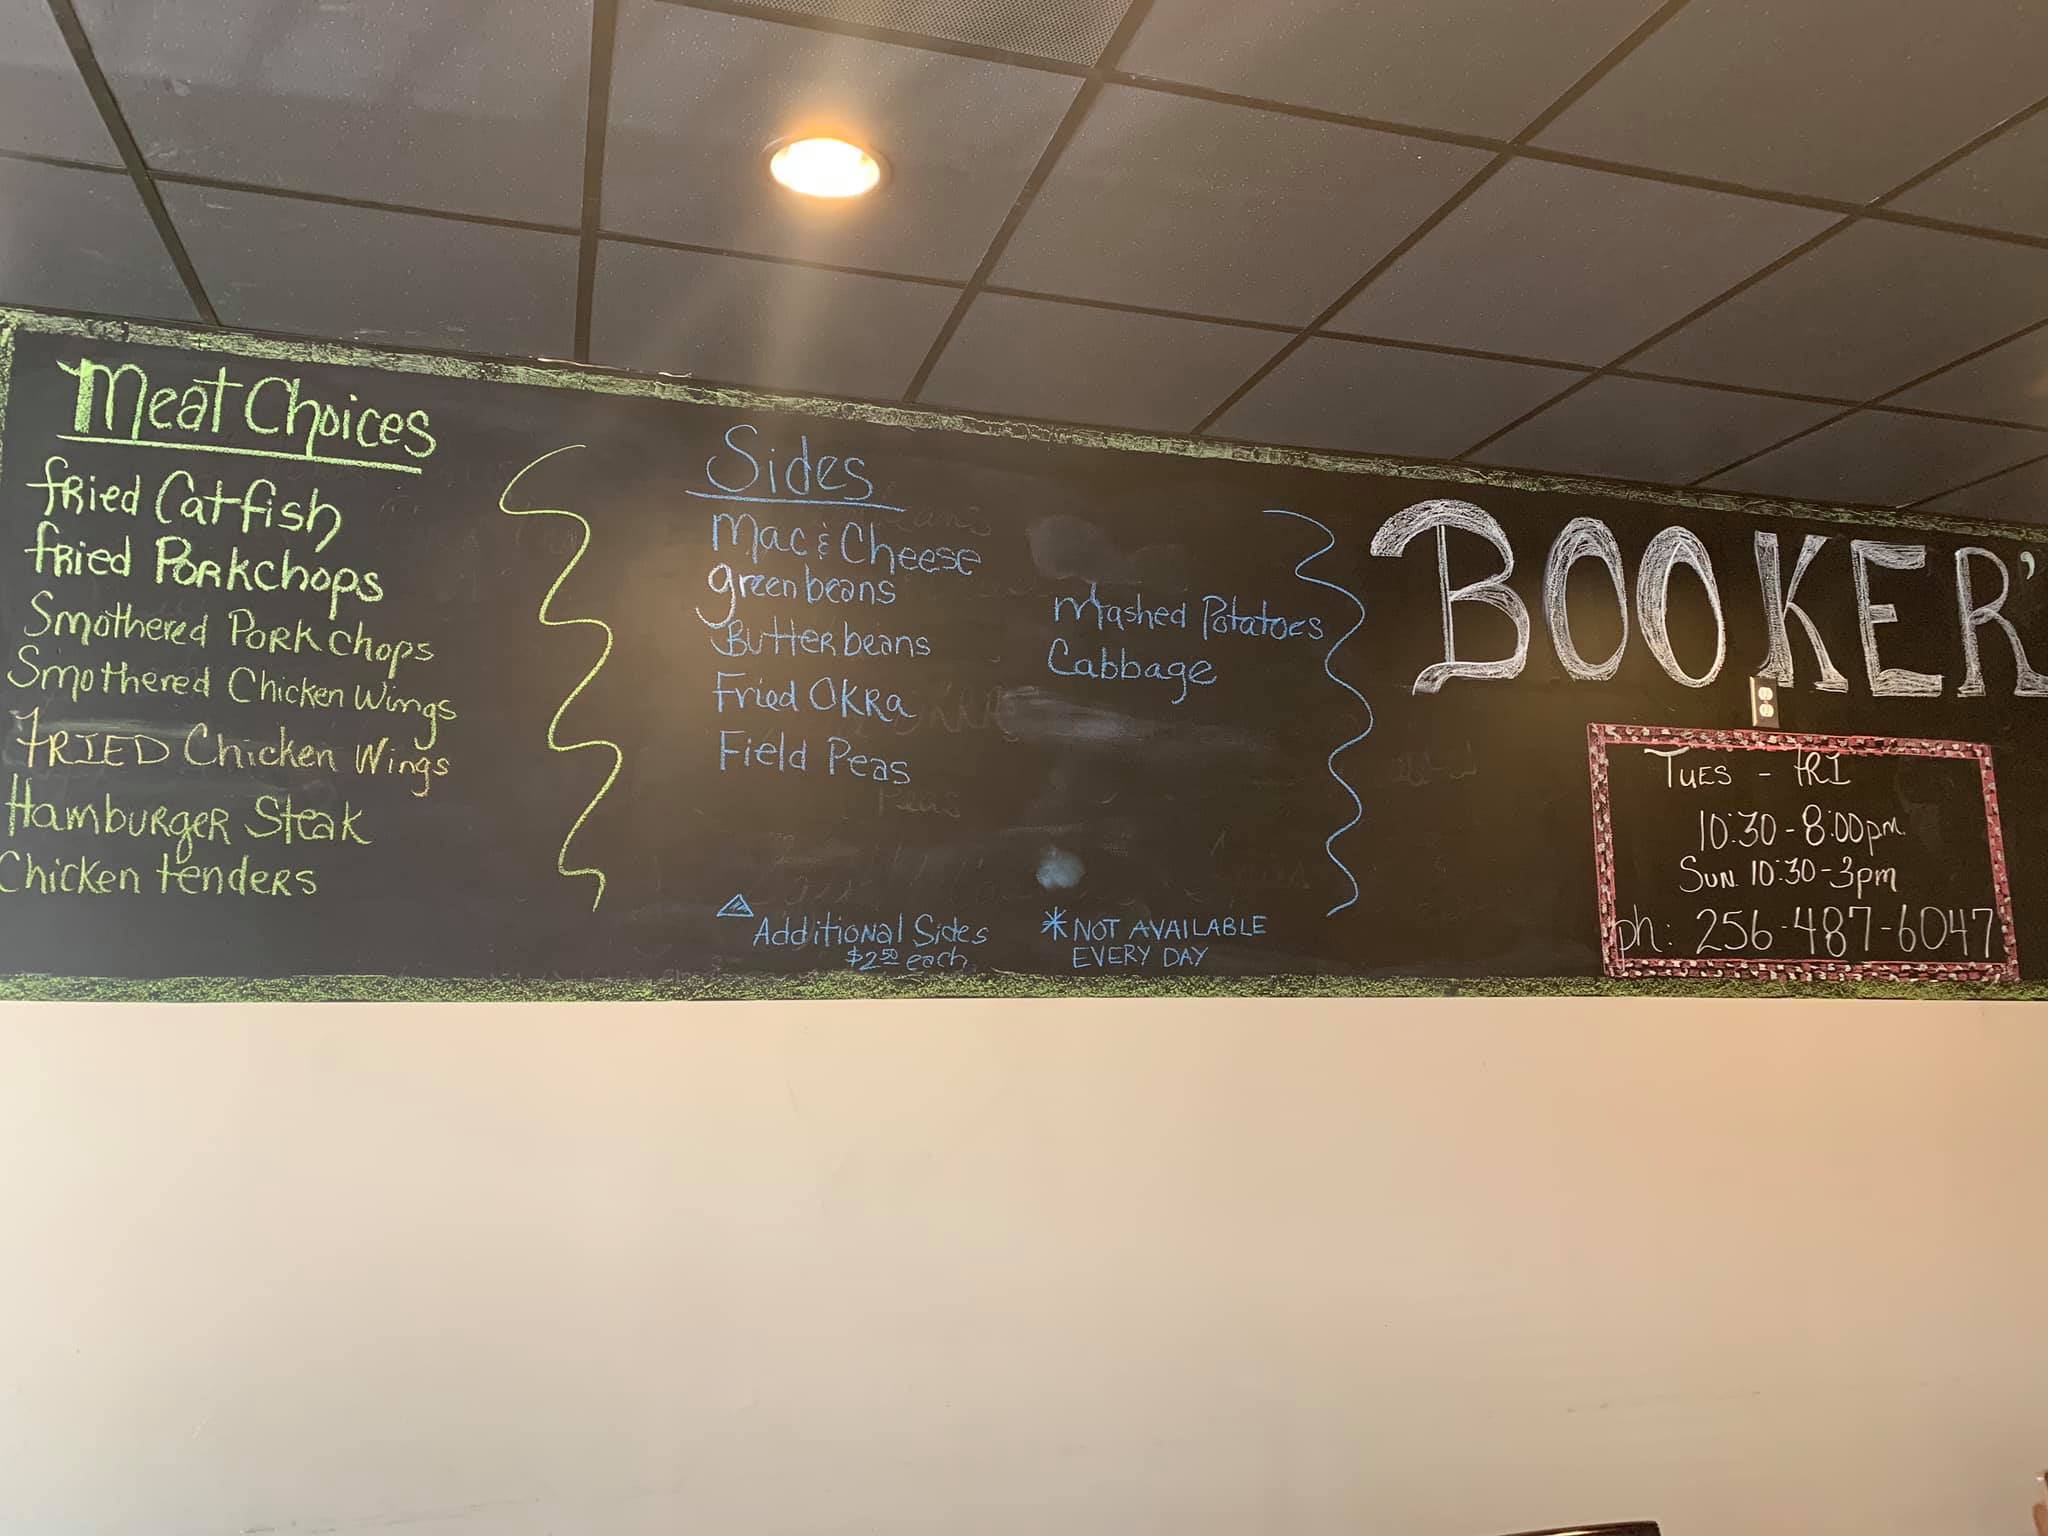 Meat Choices
fried Catfish
fried Porkchops
Smothered Pork chops
Smothered Chicken Wings
FRIED Chicken Wings
Hamburger Steak
Chicken tenders
Sides
Mac & Cheese
green beans
Butter beans
Fried Okra
Field Peas
Mashed Potatoes
Cabbage
Additional Sides
$2.50 each
* NOT AVAILABLE
EVERY DAY
BOOKER'
TUES - FRI
10:30 - 8:00pm
SUN. 10:30 - 3pm
ph: 256-487-6047